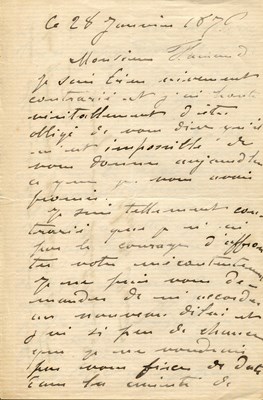 Ce 28 Janvier 1876
Monsieur
Je suis bien vivement
contrarié et j'ai honte
véritablement d'être
obligé de vous dire qu'il
m'est impossible de
vous donner aujourd'hui
ce que je vous avais
promis.
Je suis tellement con-
trarié que je n'ai
pas le courage d'affron
ter votre mécontentement
Je ne puis vous de-
mander de m'accorder
un nouveau délai et
j'ai si peu de chance
que je ne voudrais
pas vous fixer de date
dans la crainte de